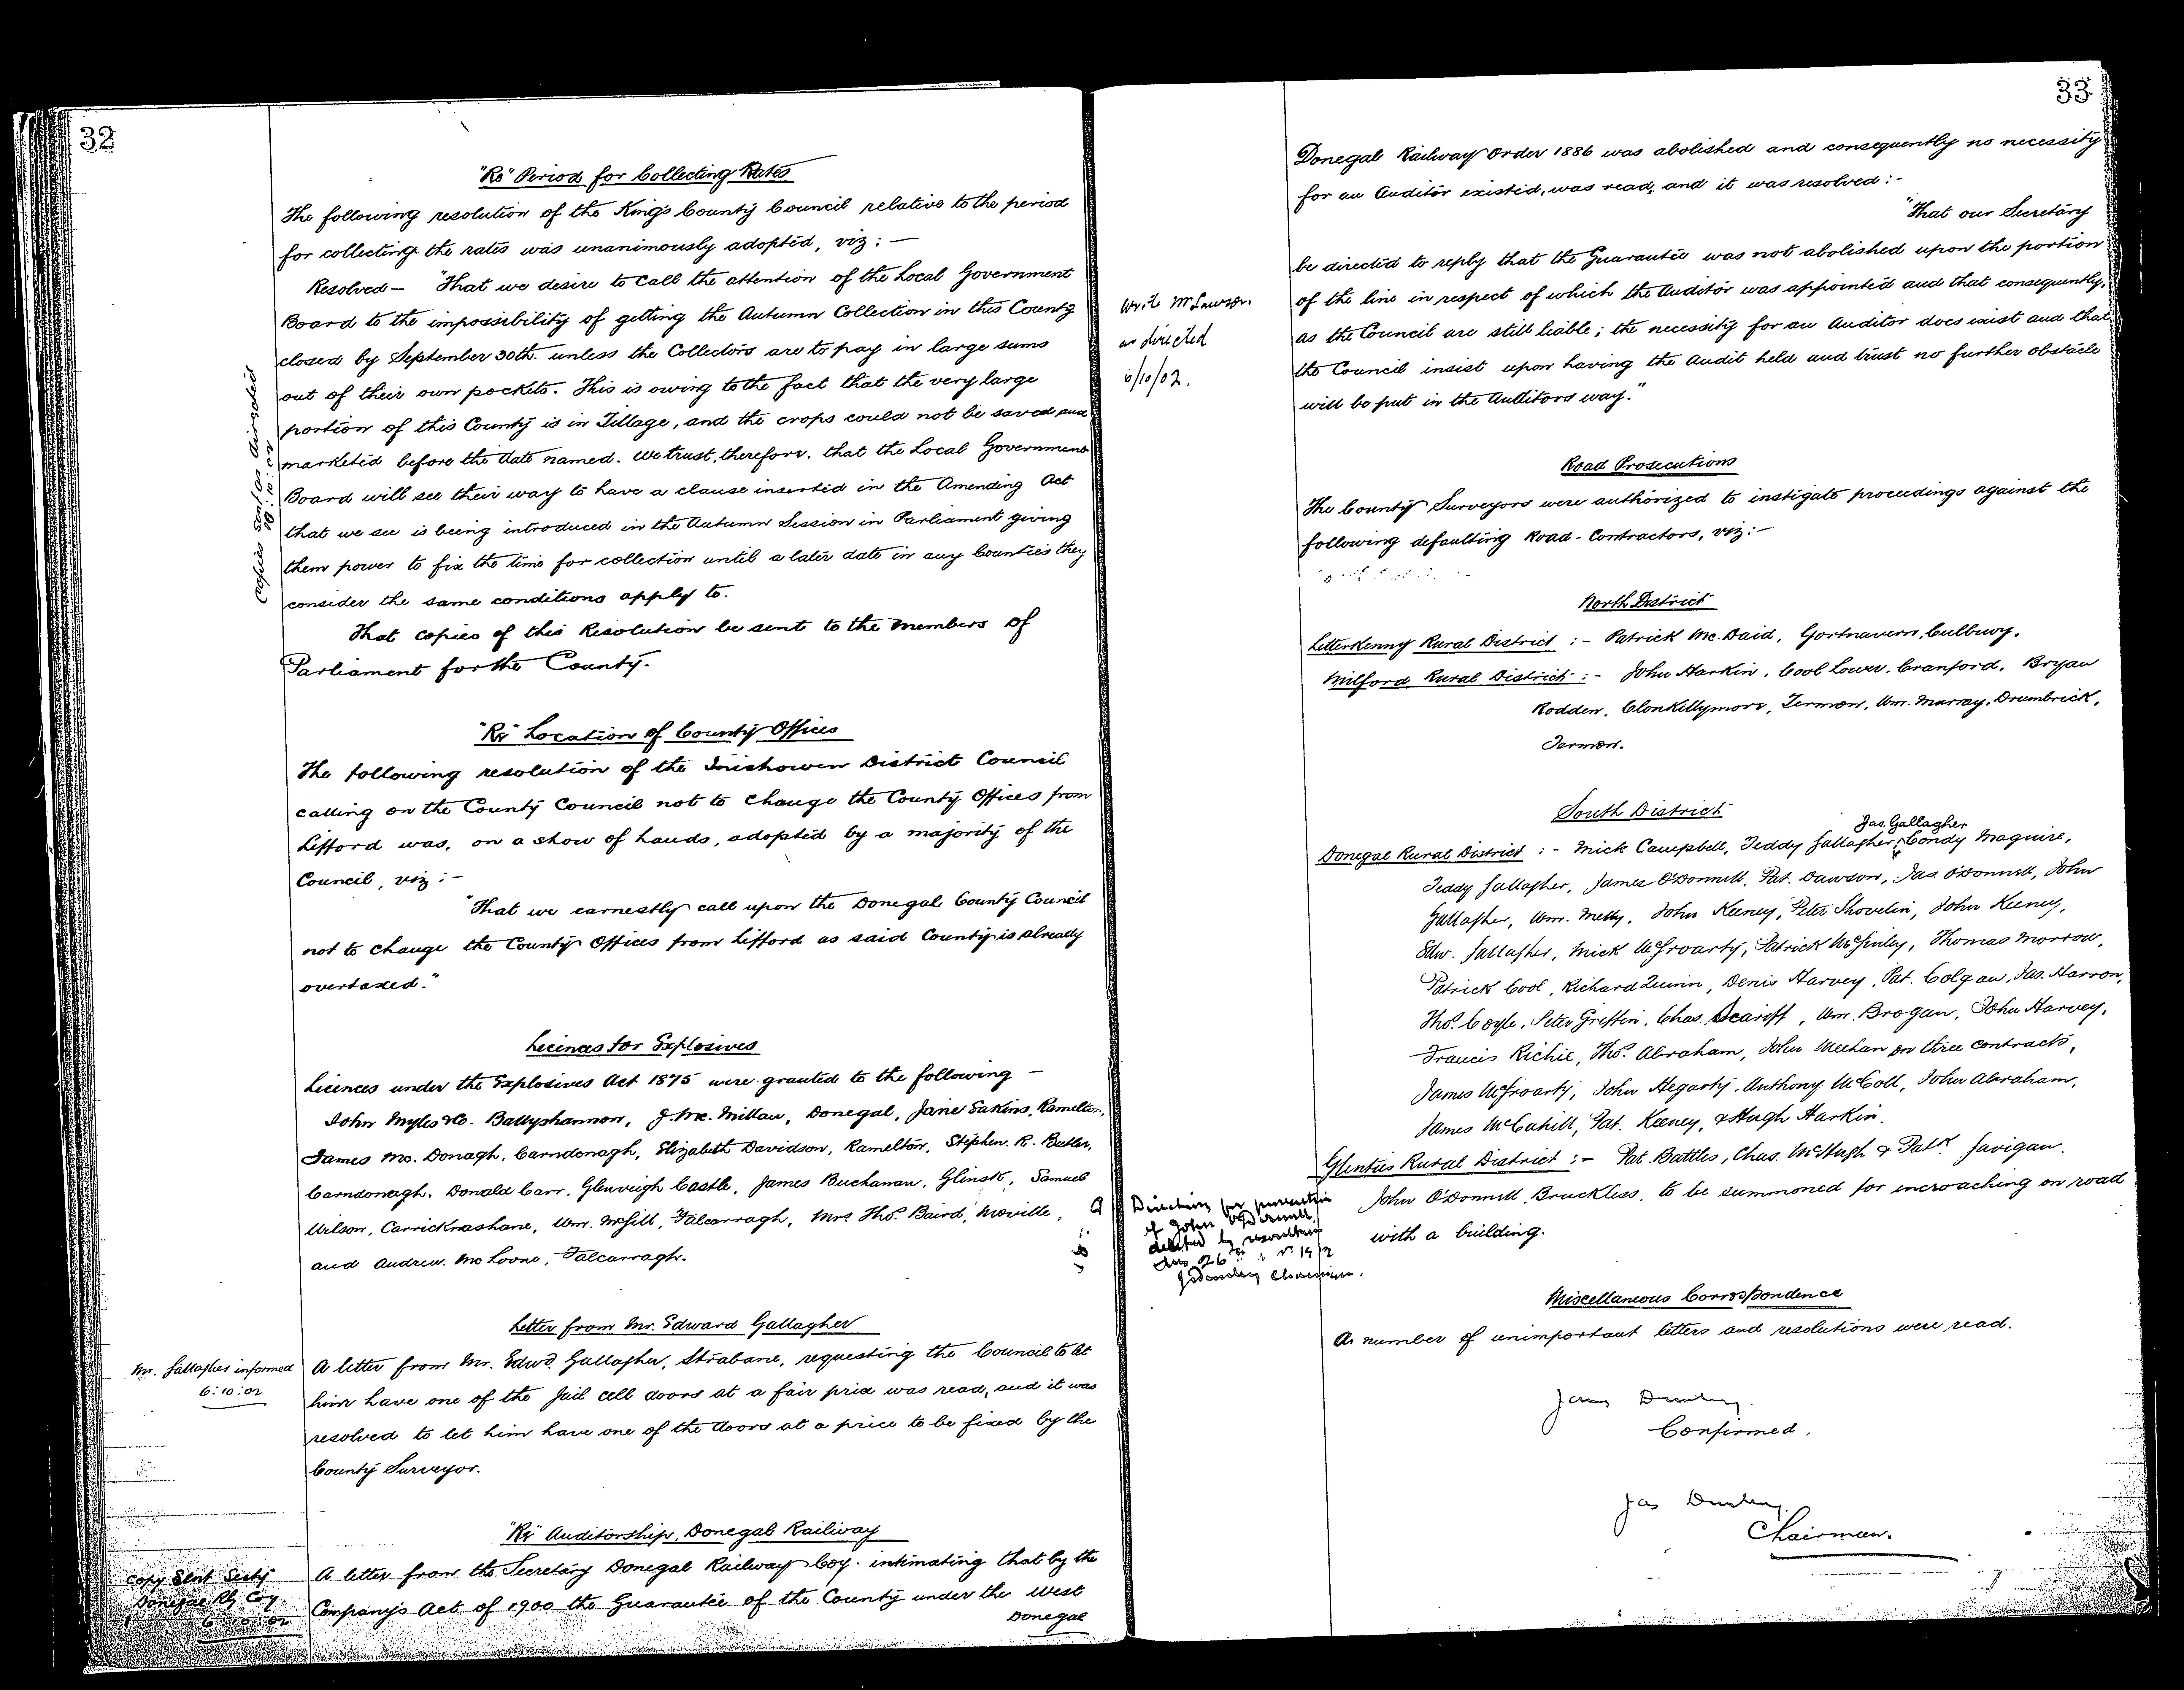 32
"Re" Period for Collecting Rates
The following resolution of the King's County Council relative to the period
for collecting the rates was unanimously adopted, viz:—
Resolved — "That we desire to call the attention of the Local Government
Board to the impossibility of getting the Autumn Collection in this County
closed by September 30th. unless the Collectors are to pay in large sums
out of their own pockets. This is owing to the fact that the very large
portion of this County is in Tillage, and the crops could not be saved and
marketed before the date named. We trust, therefore, that the Local Government
Board will see their way to have a clause inserted in the Amending Act
that we see is being introduced in the Autumn Session in Parliament giving
them power to fix the time for collection until a later date in any Counties they
consider the same conditions apply to.
Copies sent as directed
That copies of this Resolution be sent to the Members of
Parliament for the County.
"Re" Location of County Offices
The following resolution of the Inishowen District Council
calling on the County Council not to change the County Offices from
Lifford was, on a show of hands, adopted by a majority of the
Council, viz:—
"That we earnestly call upon the Donegal County Council
not to change the County Offices from Lifford as said County is already
overtaxed."
Licences for Explosives
Licences under the Explosives Act 1875 were granted to the following —
John Myles & Co. Ballyshannon, J. Mc. Millan, Donegal, Jane Eakins, Ramelton,
James Mc. Donagh, Carndonagh, Elizabeth Davidson, Ramelton, Stephen. R. Butler,
Carndonagh, Donald Carr, Glenveigh Castle, James Buchanan, Glinsk, Samuel
Wilson, Carricknashane, Wm. McGill, Falcarragh, Mrs Thos. Baird, Moville,
and Andrew. Mc Loone, Falcarragh.
Letter from Mr. Edward Gallagher
Mr. Gallagher informed
6:10:02
A letter from Mr. Edwd. Gallagher, Strabane, requesting the Council to let
him have one of the Jail cell doors at a fair price was read, and it was
resolved to let him have one of the doors at a price to be fixed by the
County Surveyor.
"Re" Auditorship, Donegal Railway
Copy Sent Secty
Donegal Rly Coy.
6:10:02
A letter from the Secretary Donegal Railway Coy. intimating that by the
Company's Act of 1900 the Guarantee of the County under the West
Donegal
33
Donegal Railway Order 1886 was abolished and consequently no necessity
for an Auditor existed, was read, and it was resolved:-
"That our Secretary
be directed to reply that the Guarantee was not abolished upon the portion
of the line in respect of which the Auditor was appointed and that consequently,
as the Council are still liable; the necessity for an Auditor does exist and that
the Council insist upon having the Audit held and trust no further obstacle
will be put in the Auditors way."
Write Mr Lawson.
as directed
6/10/02.
Road Prosecutions
The County Surveyors were authorized to instigate proceedings against the
following defaulting Road-Contractors, viz:—
North District
Letterkenny Rural District :- Patrick Mc. Daid, Gortnavern, Culbuoy.
Milford Rural District :- John Harkin, Cool Lower, Cranford, Bryan
Rodden, Clonkillymore, Termon, Wm. Murray, Drumbrick,
Termon.
South District
Jas. Gallagher
Donegal Rural District :- Mick Campbell, Teddy Gallagher, Condy Maguire,
Teddy Gallagher, James O'Donnell, Pat. Dawson, Jas. O'Donnell, John
Gallagher, Wm. Melly, John Keeney, Peter Shovelin, John Keeney,
Edw. Gallagher, Mick McGroarty, Patrick McGinley, Thomas Morrow,
Patrick Cool, Richard Quinn, Denis Harvey, Pat. Colgan, Jas. Harron,
Thos. Coyle, Peter Griffin, Chas. Scariff, Wm. Brogan, John Harvey,
Francis Richie, Thos. Abraham, John Meehan on three contracts,
James McGroarty, John Hegarty, Anthony McColl, John Abraham,
James McCahill, Pat. Keeney, & Hugh Harkin.
Glenties Rural District :- Pat. Battles, Chas. McHugh & Patk. Gavigan.
John O'Donnell, Bruckless, to be summoned for incroaching on road
with a building.
Direction for prosecution
of John O'Donnell
deleted by resolution
Chairman.
Miscellaneous Correspondence
A number of unimportant letters and resolutions were read.
Confirmed.
Chairman.